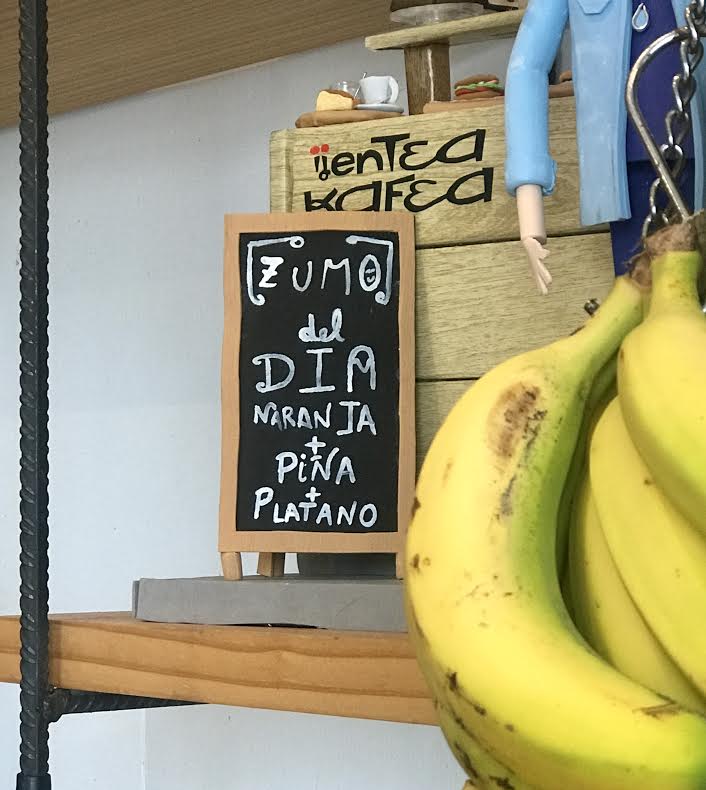 ¡¡enTEa
KafEa
ZUMO
del
DIA
NARANJA
+
PIÑA
+
PLATANO